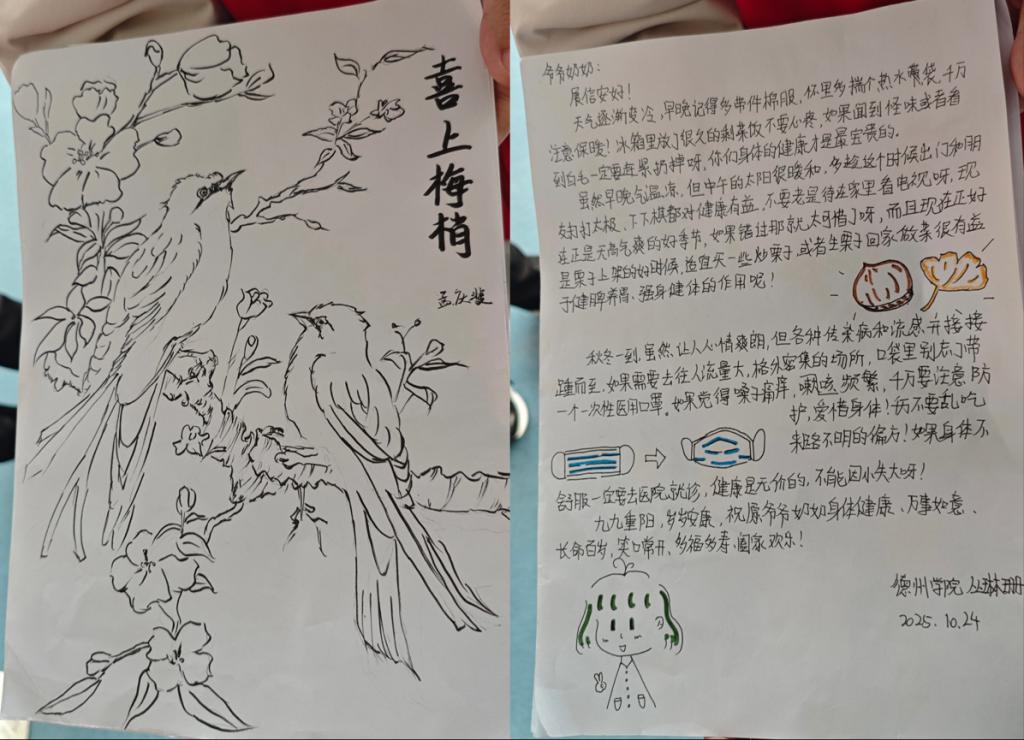 喜上梅梢
爷爷奶奶：
展信安好！
天气逐渐变冷，早晚记得多带件棉服，怀里多揣个热水袋，千万
注意保暖！冰箱里放了很久的剩菜饭不要心疼，如果闻到怪味或者看
到白毛一定要赶紧扔掉呀，你们身体的健康才是最宝贵的。
虽然早晚气温凉，但中午的太阳很暖和，多趁这个时候出门和朋
友打打太极、下下棋都对健康有益，不要老是待在家里看电视呀，现
在正是天高气爽的好季节，如果错过那就太可惜了呀，而且现在正好
是栗子上架的好时候，适宜买一些炒栗子，或者生栗子回家做菜很有益
于健脾养胃、强身健体的作用呢！
秋冬一到，虽然让人心情爽朗，但各种传染病和流感并接接
踵而至，如果需要去往人流量大，格外密集的场所，口袋里别忘了带
一个一次性医用口罩。如果觉得嗓子痛痒，嗽咳频繁，千万要注意防
护，爱惜身体！药不要乱吃
来路不明的偏方！如果身体不
舒服一定要去医院就诊，健康是无价的，不能因小失大呀！
九九重阳，岁岁安康，祝愿爷爷奶奶身体健康、万事如意、
长命百岁，笑口常开、多福多寿、阖家欢乐！
德州学院 丛琳珊
2025.10.24